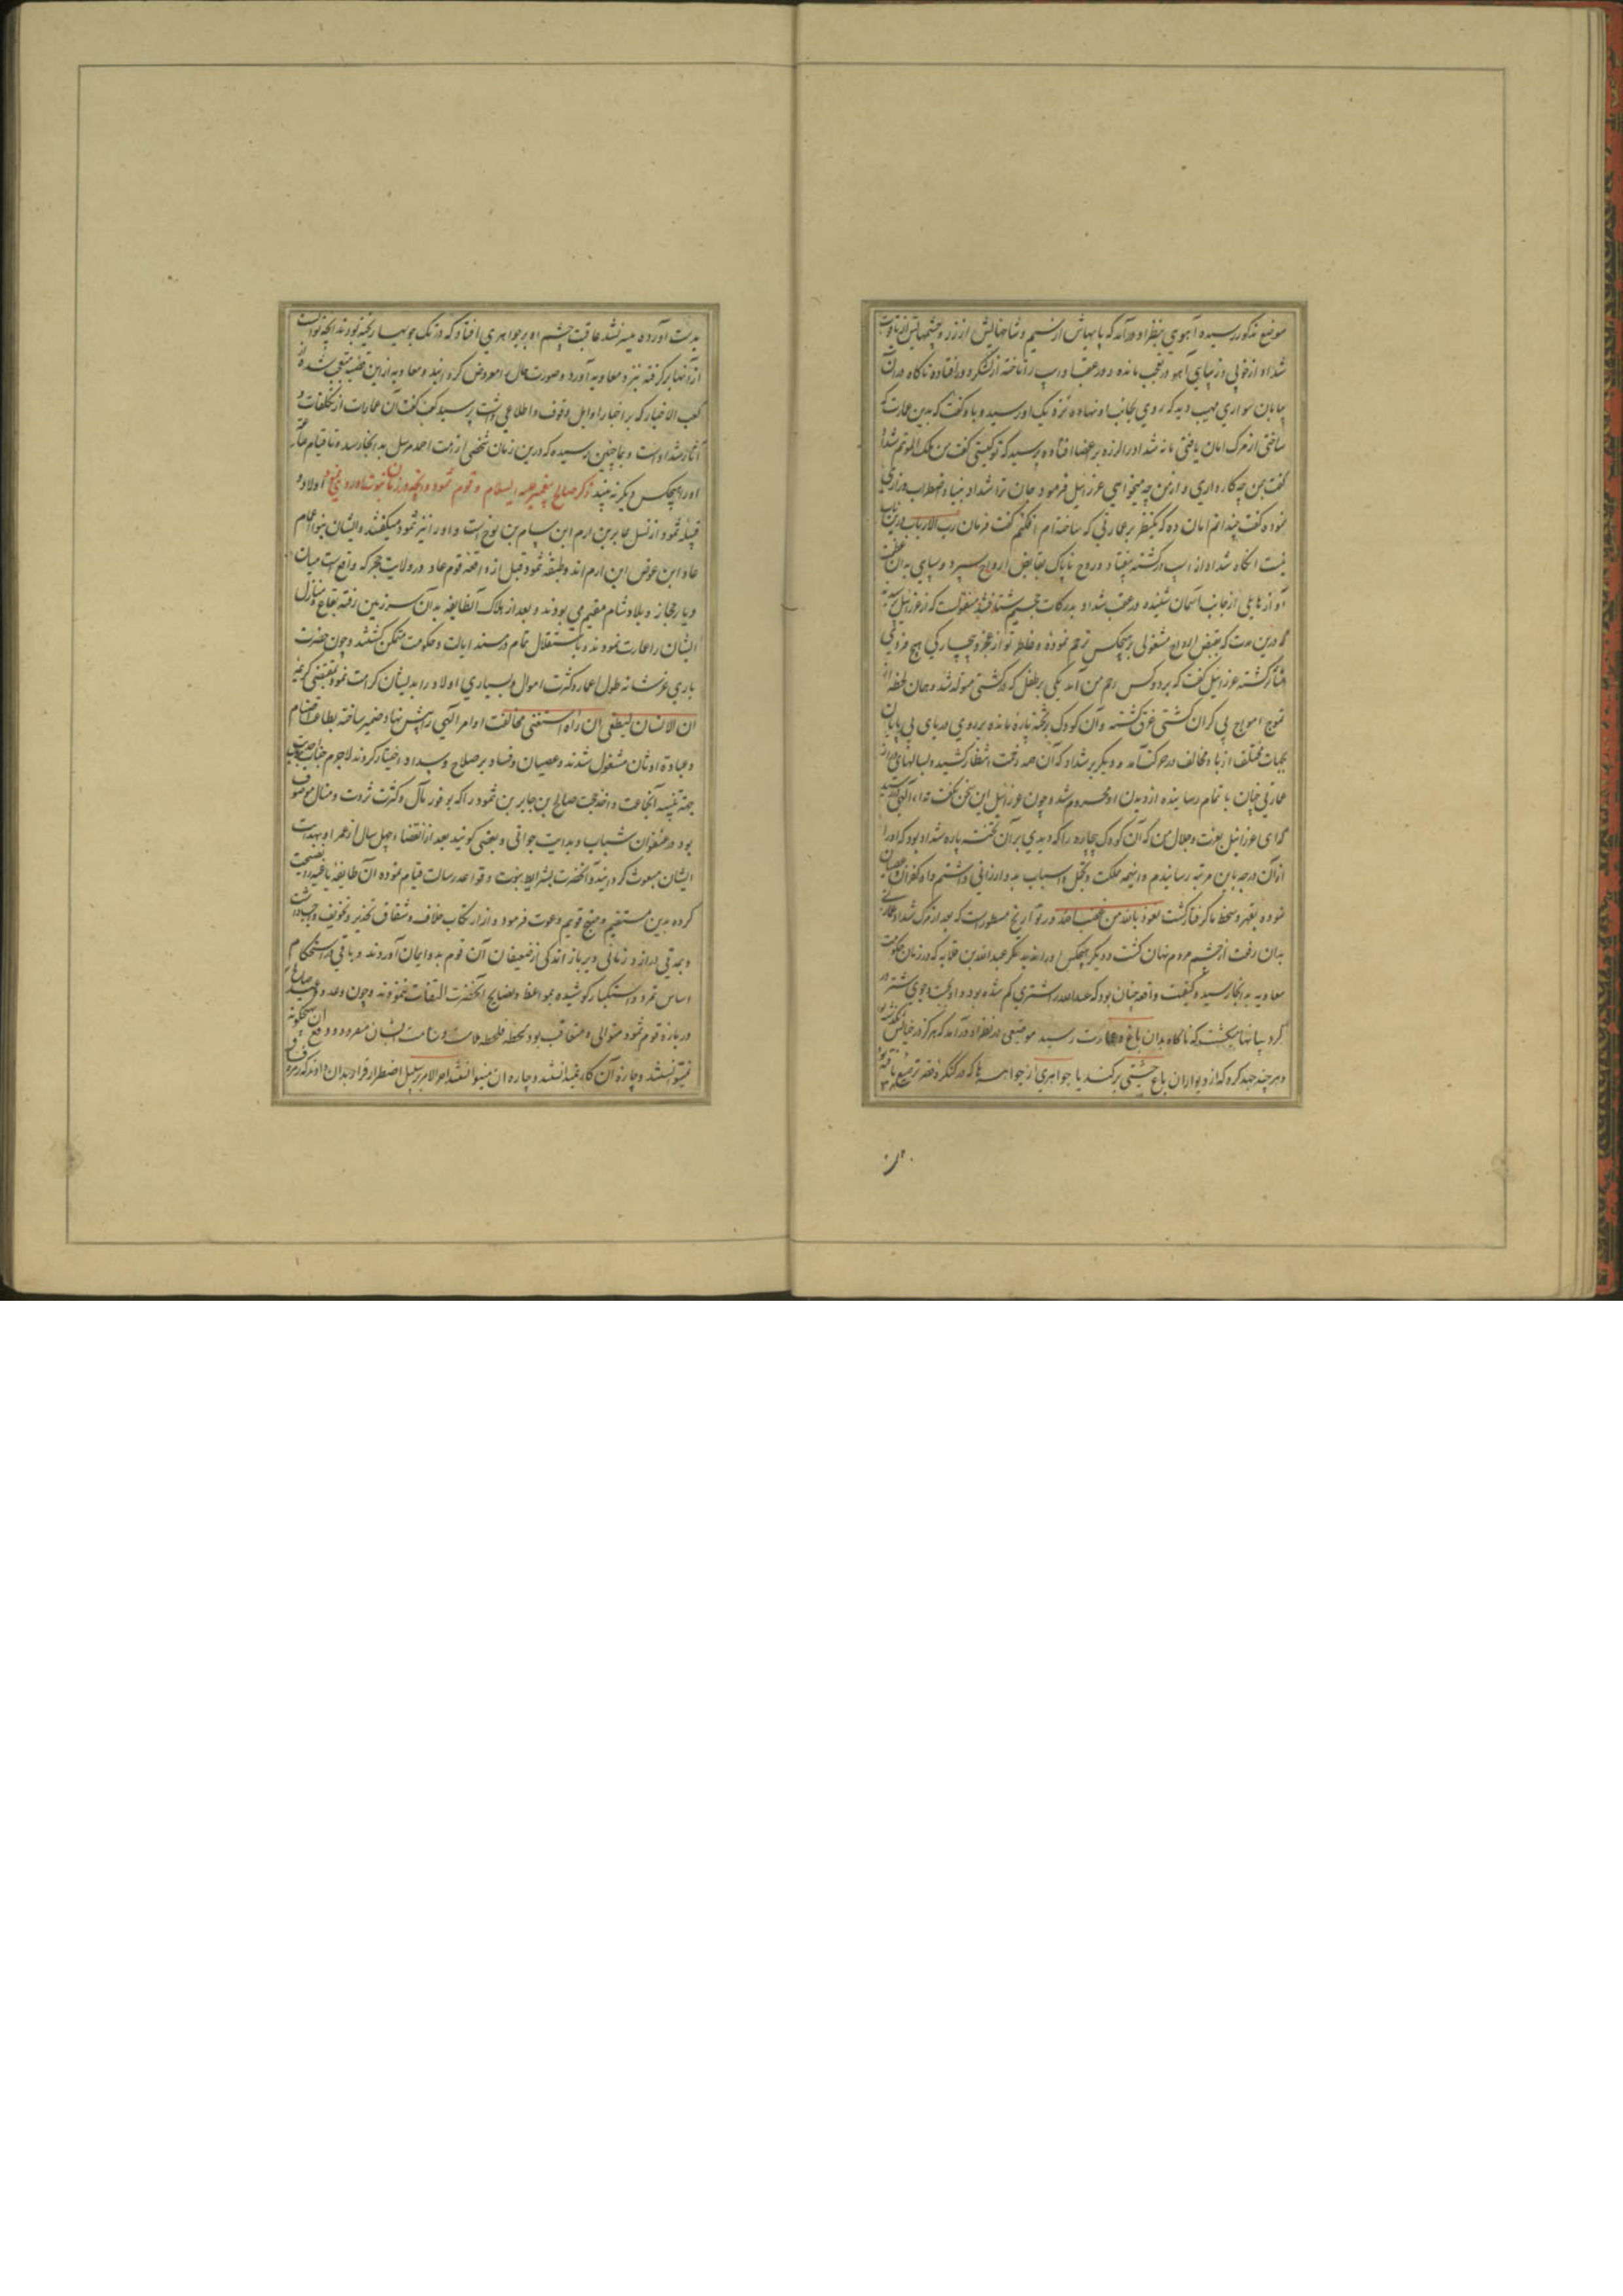 موضع مذکور رسیده آهوی بنظر او درآمد که پایهاش از سیم و شاخهایش از زر و چشمهایش از یاقوت
شداد از خوبی و زیبایی آهو در تعجب مانده و در عقب او اسپ را تاخته از لشکر دور افتاده ناگاه در آن
بیابان سواری مهیب دید که روی بجانب او نهاده نزدیک او رسید و با او گفت که بدین عمارت که
ساختی از مرگ امان یافتی یا نه شداد را لرزه بر اعضا افتاده پرسید که تو کیستی گفت من ملک الموتم شداد
گفت بمن چه کار داری و از من چه میخواهی عزرائیل فرمود جان ترا شداد بنیاد اضطراب و زاری
نموده گفت چندانم امان ده که یکنظر بر عمارتی که ساخته‌ام افکنم گفت فرمان رب الارباب درین باب
نیست آنگاه شداد از اسپ درگشته بیفتاد و روح ناپاک بقابض ارواح سپرد و سپاهی بدان عظمت
آواز هایلی از جانب آسمان شنیده در عقب شداد بدرکات جحیم شتافتند منقولست که از عزرائیل
که درین مدت که بقبض ارواح مشغولی بر هیچکس ترحم نموده و خاطر تو از عجز و بیچارگی هیچ فردی
متأثر گشته عزرائیل گفت که بر دو کس رحم من آمد یکی بر طفلی که در کشتی متولد شد و همان لحظه از
تموج امواج بی کران کشتی غرق گشته و آن کودک بر تخته پاره مانده بر روی دریای بی پایان
بجهات مختلف از باد مخالف در حرکت آمد و دیگر بر شداد که آن همه زحمت انتظار کشیده و سالهای دراز
عمارتی چنان با تمام رسانیده از دیدن او محروم شد و چون عزرائیل این سخن بگفت ندا الهی رسید
که ای عزرائیل بعزت و جلال من که آن کودک بیچاره را که دیدی بر آن تخته پاره شداد بود که او را
از آن درجه بدین مرتبه رسانیدم و اینهمه مملکت و تجمل و اسباب بدو ارزانی داشتم و او کفران و عصیان
نموده بقهر و سخط ما گرفتار گشت نعوذ بالله من غضب الله در تواریخ مسطور است که بعد از مرگ شداد
بدان رفعت از چشم مردم نهان گشت و دیگر هیچکس او را ندید مگر عبدالله بن قلابه که در زمان حکومت
معاویه به انجا رسید و کیفیت واقعه چنان بود که عبدالله را شتری گم شده بود و او بجست و جوی شتر در
گرد بیابانها میگشت که ناگاه بدان باغ و عمارت رسید موضعی در نظر او درآمد که هرگز در خیالش نگذشته بود
و هر چند جهد کرد که از دیوار آن باغ خشتی بر کند یا جواهری از جواهرها که در کنگره قصر ترصیع یافته بود
بدست آورده میسر نشد عاقبت چشم او بر جواهری افتاد که در تک جویها ریخته بودند آنچه توانست
از آنها بر گرفته نزد معاویه آورد و صورت حال را معروض گردانید و معاویه از این قضیه متعجب شده از
کعب الاخبار که بر اخبار اوایل وقوف و اطلاعی داشت پرسید کعب گفت آن عمارات از مخلفات و
آثار شداد است و بما چنین رسیده که درین زمان شخصی از امت احمد مرسل بدانجا رسد و تا قیام
او را هیچکس دیگر نه بیند ذکر صالح پیغمبر علیه السلام و قوم ثمود و آنچه در زمان نبوت او روی نمود اولاد و
قبیله ثمود از نسل عابر بن ارم ابن سام بن نوح است و او را نیز ثمود میگفتند و ایشان بنو اعمام
عاد ابن عوض ابن ارم اند و طبقه ثمود قبل از واقعه قوم عاد در ولایت حجر که واقع است میان
دیار حجاز و بلاد شام مقیم می بودند و بعد از هلاک آنطایفه بدان سرزمین رفته بقاع و منازل
ایشان را عمارت نمودند و باستقلال تمام در مسند ایالت و حکومت متمکن گشتند و چون حضرت
باری عز شانه طول اعمار و کثرت اموال و بسیاری اولاد را بدیشان کرامت نمود بمقتضی کریمه
ان الانسان لیطغی ان راه استغنی مخالفت اوامر الهی را پیش نهاد ضمیر ساخته بطاعت اصنام
و عبادة اوثان مشغول شدند و عصیان و فساد بر صلاح و سداد اختیار کردند لاجرم جناب
جهة تنبیه آنجماعت و اخذ حجت صالح بن جابر بن ثمود را که بوفور مال و کثرت ثروت و منال موصوف
بود در عنفوان شباب و بدایت جوانی و بعضی گویند بعد از انقضاء چهل سال از عمر او بهدایت
ایشان مبعوث گردانید و آنحضرت بشرایط نبوت و قواعد رسالت قیام نموده آن طایفه باغیه را نصیحت
کرده بدین مستقیم و منهج قویم دعوت فرمود و از ارتکاب خلاف و شقاق تحذیر و تخویف واجب داشت
و بمدتی دراز و زمانی دیرباز اندکی از ضعیفان آن قوم بدو ایمان آوردند و باقی در استحکام
اساس تمرد و استکبار کوشیده بمواعظ و نصایح آنحضرت التفات ننمودند و چون وعده و وعید صالح
درباره قوم ثمود متوالی و متعاقب بود لحظه فلحظه ملامت و شامت ایشان میفرمود و دفع آن بهیچگونه
نمیتوانستند و چاره آن کار نمیدانستند آخر الامر بر سبیل اضطرار قرار بدان دادند که